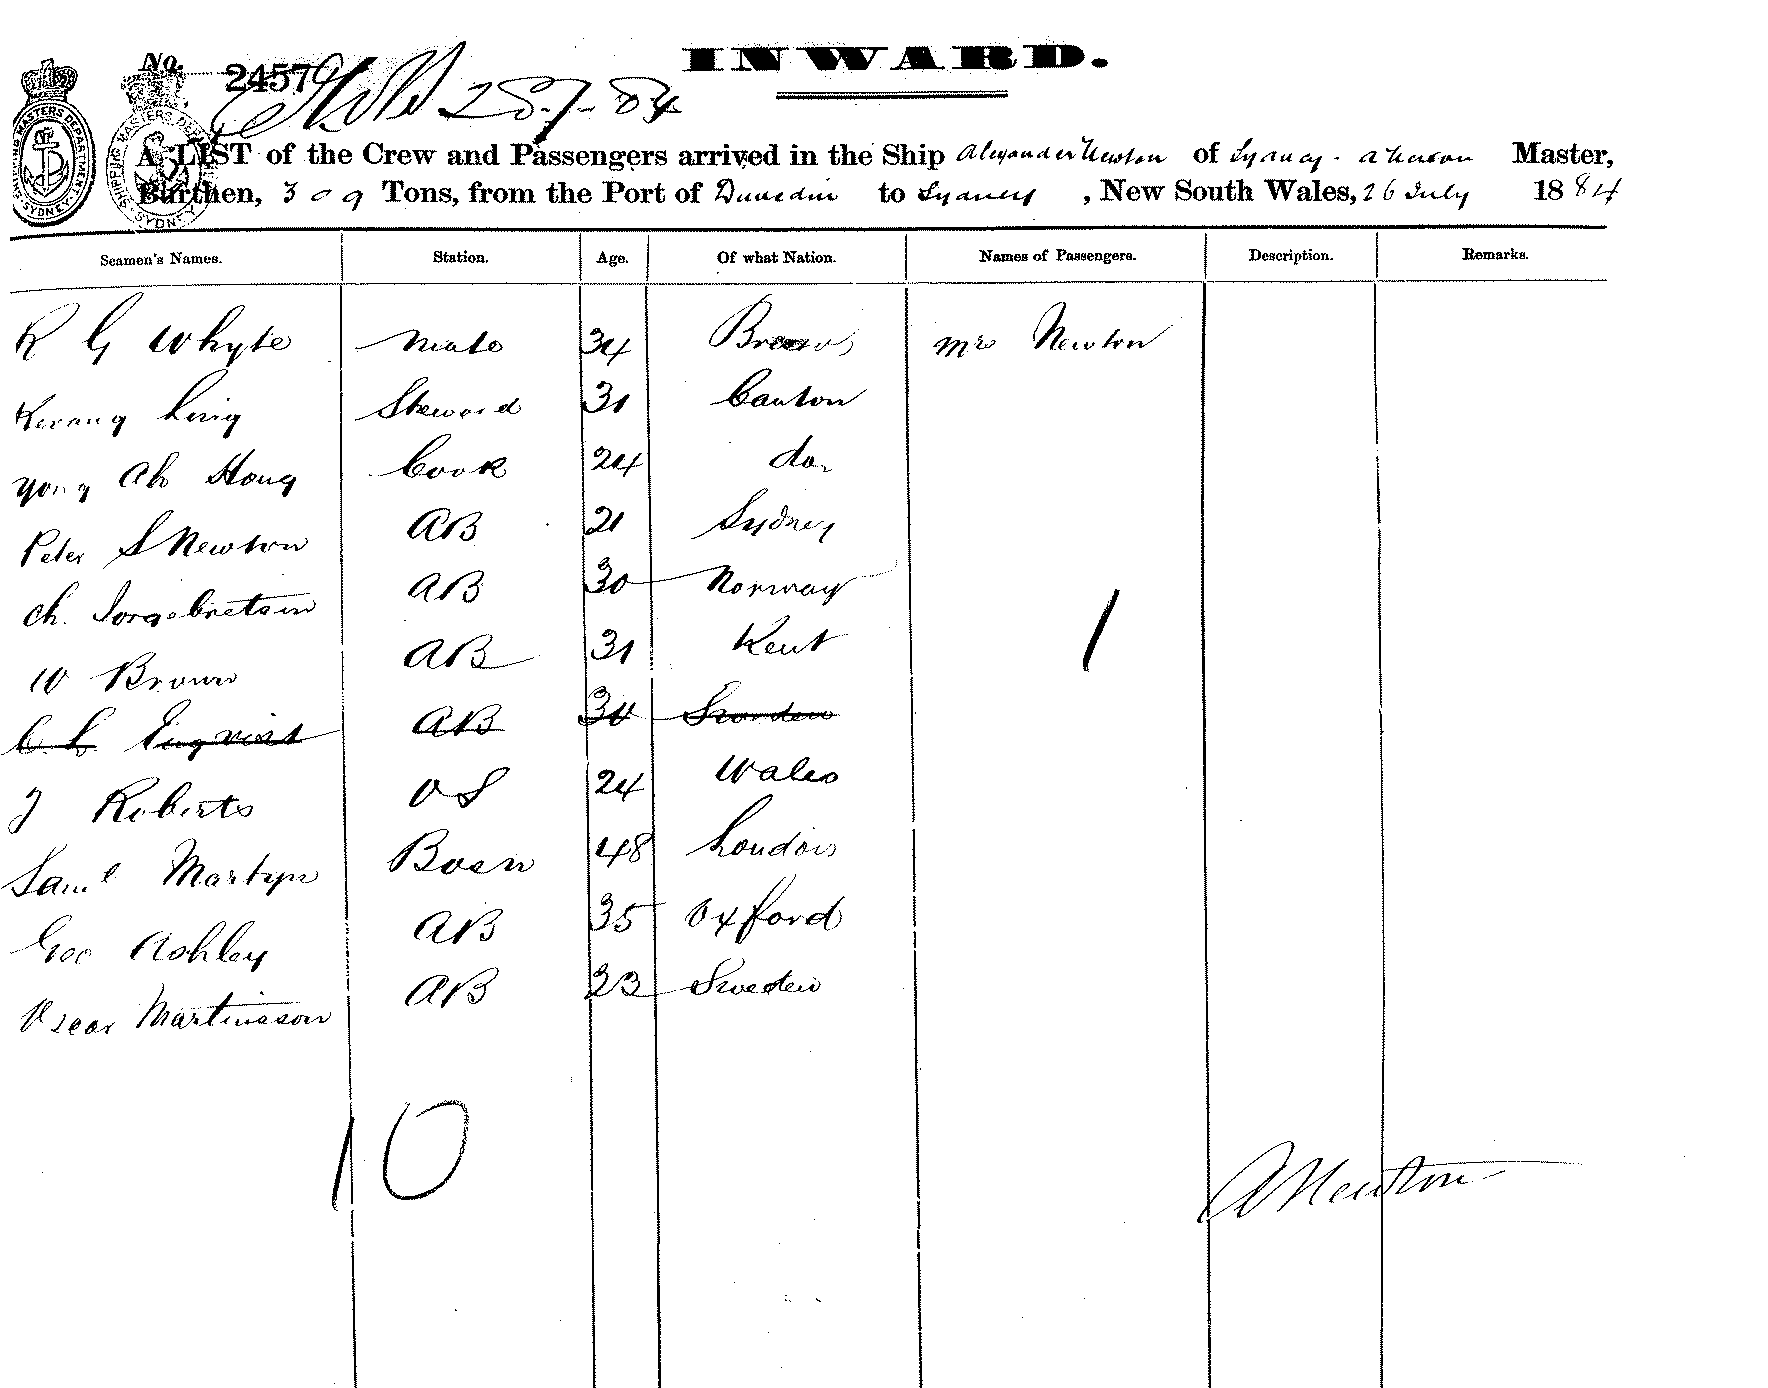 INWARD.
No. 2457
28.7.84
A LIST of the Crew and Passengers arrived in the Ship Alexander Newton of Sydney. A Newton Master,
Burthen, 309 Tons, from the Port of Dunedin to Sydney, New South Wales, 26 July 1884
Seamen's Names. Station. Age. Of what Nation. Names of Passengers. Description. Remarks.
R G Whyte Mate 34 Mrs Newton
Ling Steward 31 Canton
Yong Ah Hong Cook 24 do.
Peter S Newton AB 21 Sydney
Ch. AB 30 Norway
W Brown AB 31 Kent
1
C L Engvist AB 30 Sweden
J Roberts OS 24 Wales
Saml Martyn Bosn 48 London
Geo Ashley AB 35 Oxford
Oscar Martinsson AB 23 Sweden
10
A Newton
SHIPPING MASTERS DEPARTMENT
SYDNEY
SHIPPING MASTERS DEPARTMENT
SYDNEY